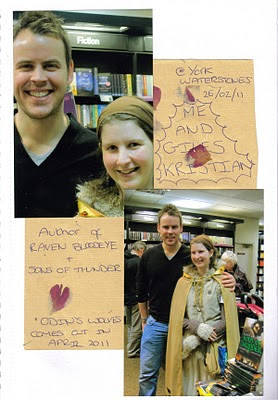 Fiction
@ YORK
WATERSTONES
26/02/11
ME
AND
GILES
KRISTIAN
Author of
RAVEN BLOODEYE
+
SONS OF THUNDER
"ODIN'S WOLVES
COMES OUT IN
APRIL 2011